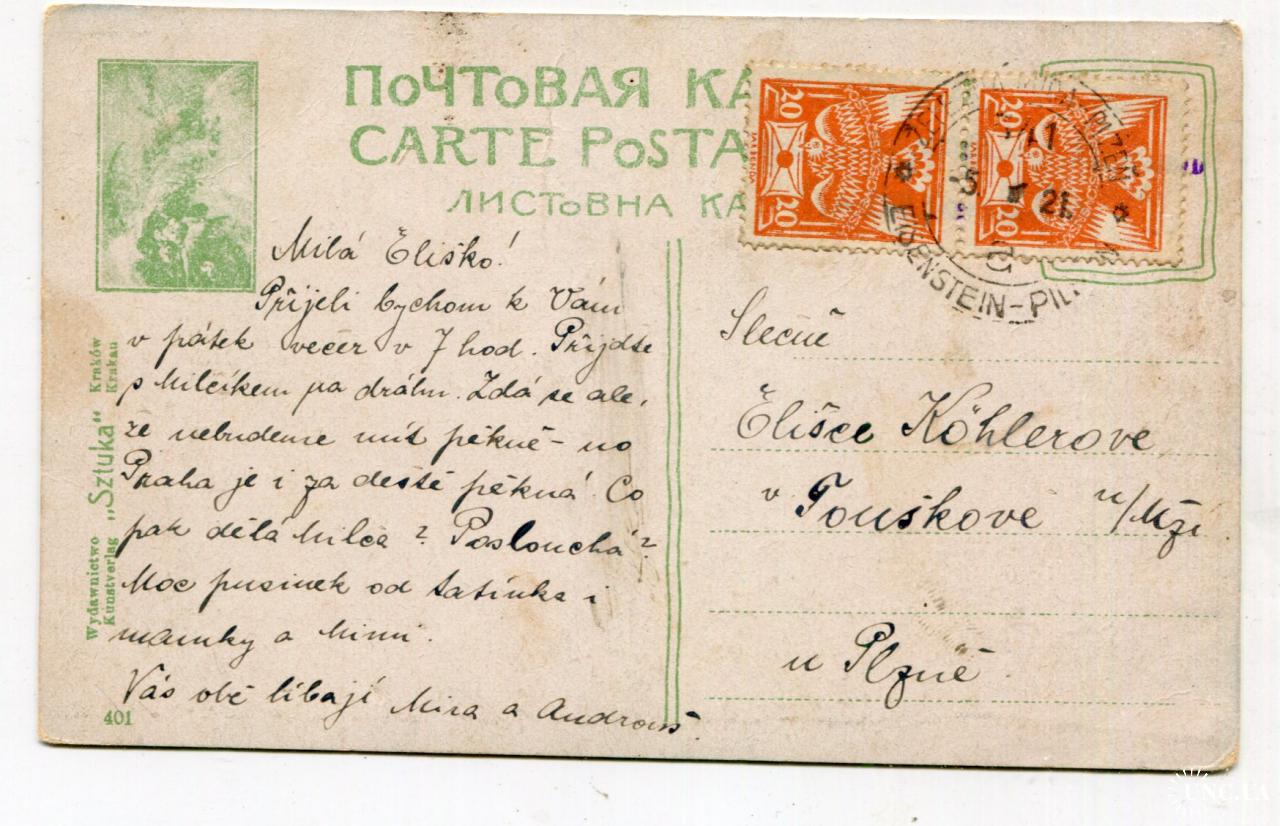 ПОЧТОВАЯ КА
CARTE POSTA
ЛИСТОВНА КА
20 20
20 20
PLZEŇ
5 21
EISENSTEIN-PIL
Milá Eliško!
Přijeli bychom k Vám
v pátek večer v 7 hod. Přijdte
s Milčíkem na dráhu. Zdá se ale,
že nebudeme mít pěkně - no
Praha je i za deště pěkná. Co
pak dělá Milča? Poslouchá?
Moc pusinek od tatínka i
mamky a Mimi.
Vás obě líbají Mira a
Slečně
Elišce Köhlerove
v Touškove n/Mži
u Plzně.
Wydawnictwo „Sztuka" Kraków
Kunstverlag Krakau
401
UNC.UA